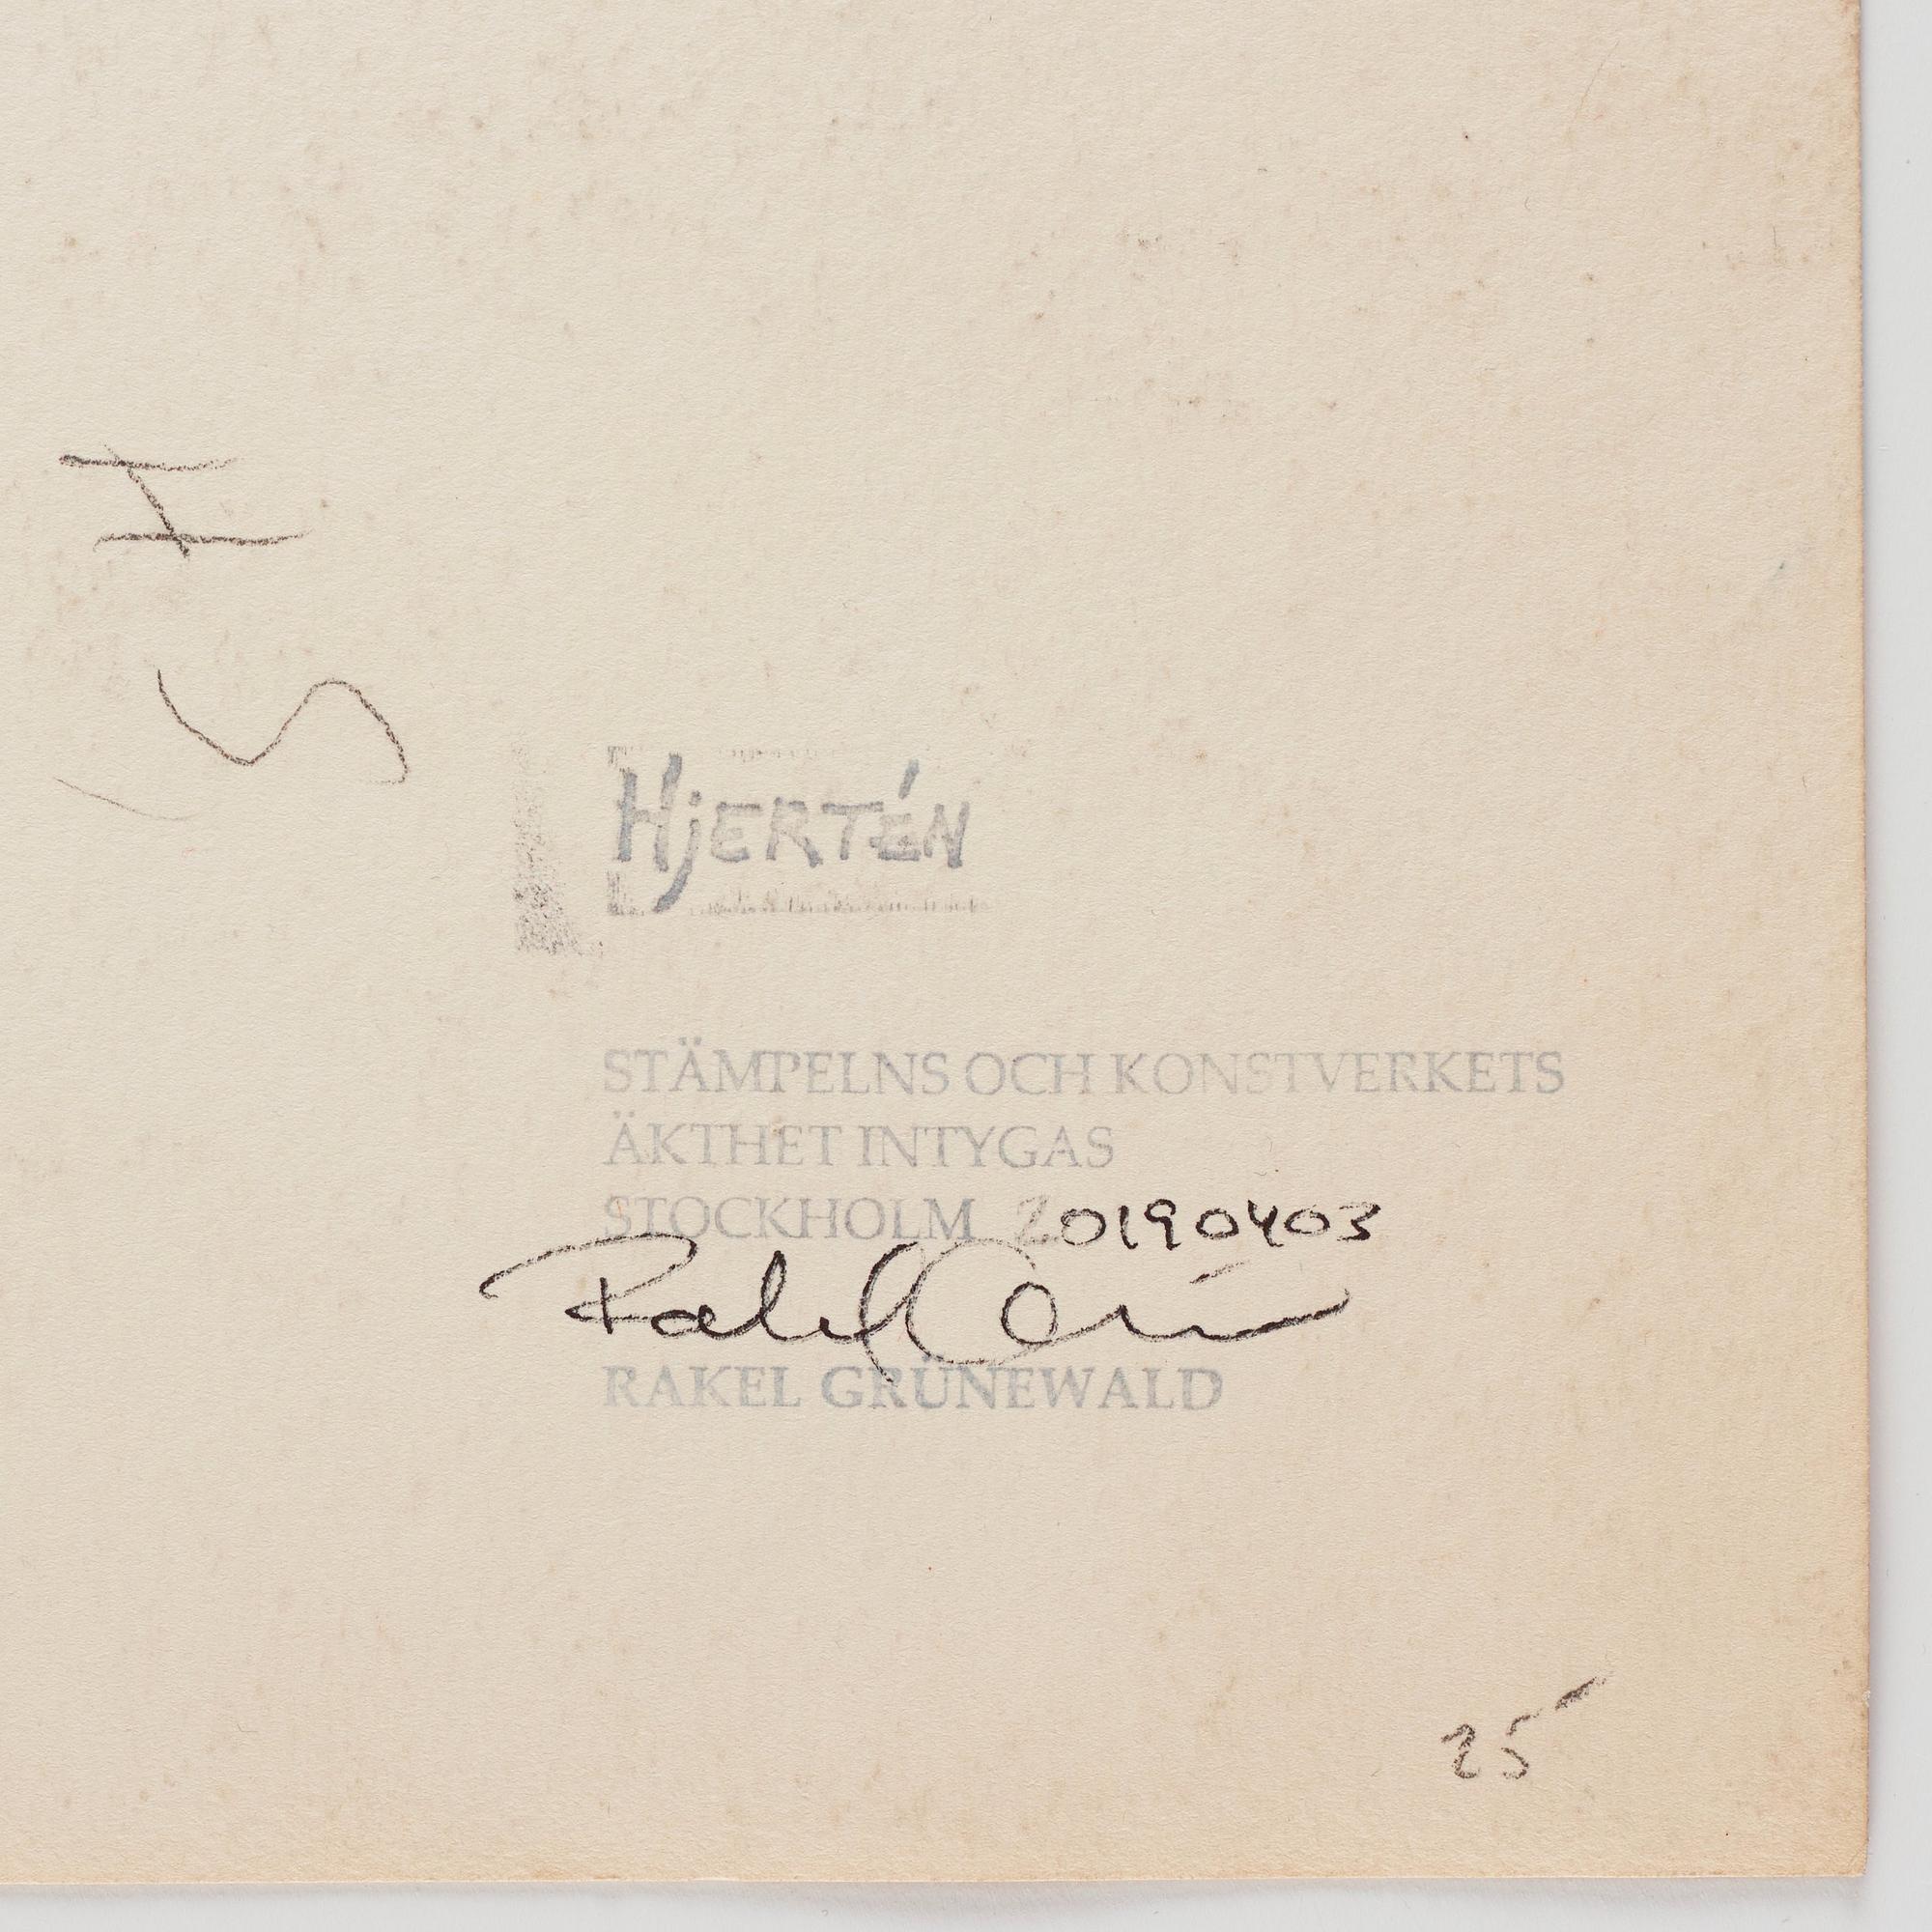 HJERTÉN
STÄMPELNS OCH KONSTVERKETS
ÄKTHET INTYGAS
STOCKHOLM 20190403
RAKEL GRÜNEWALD
25